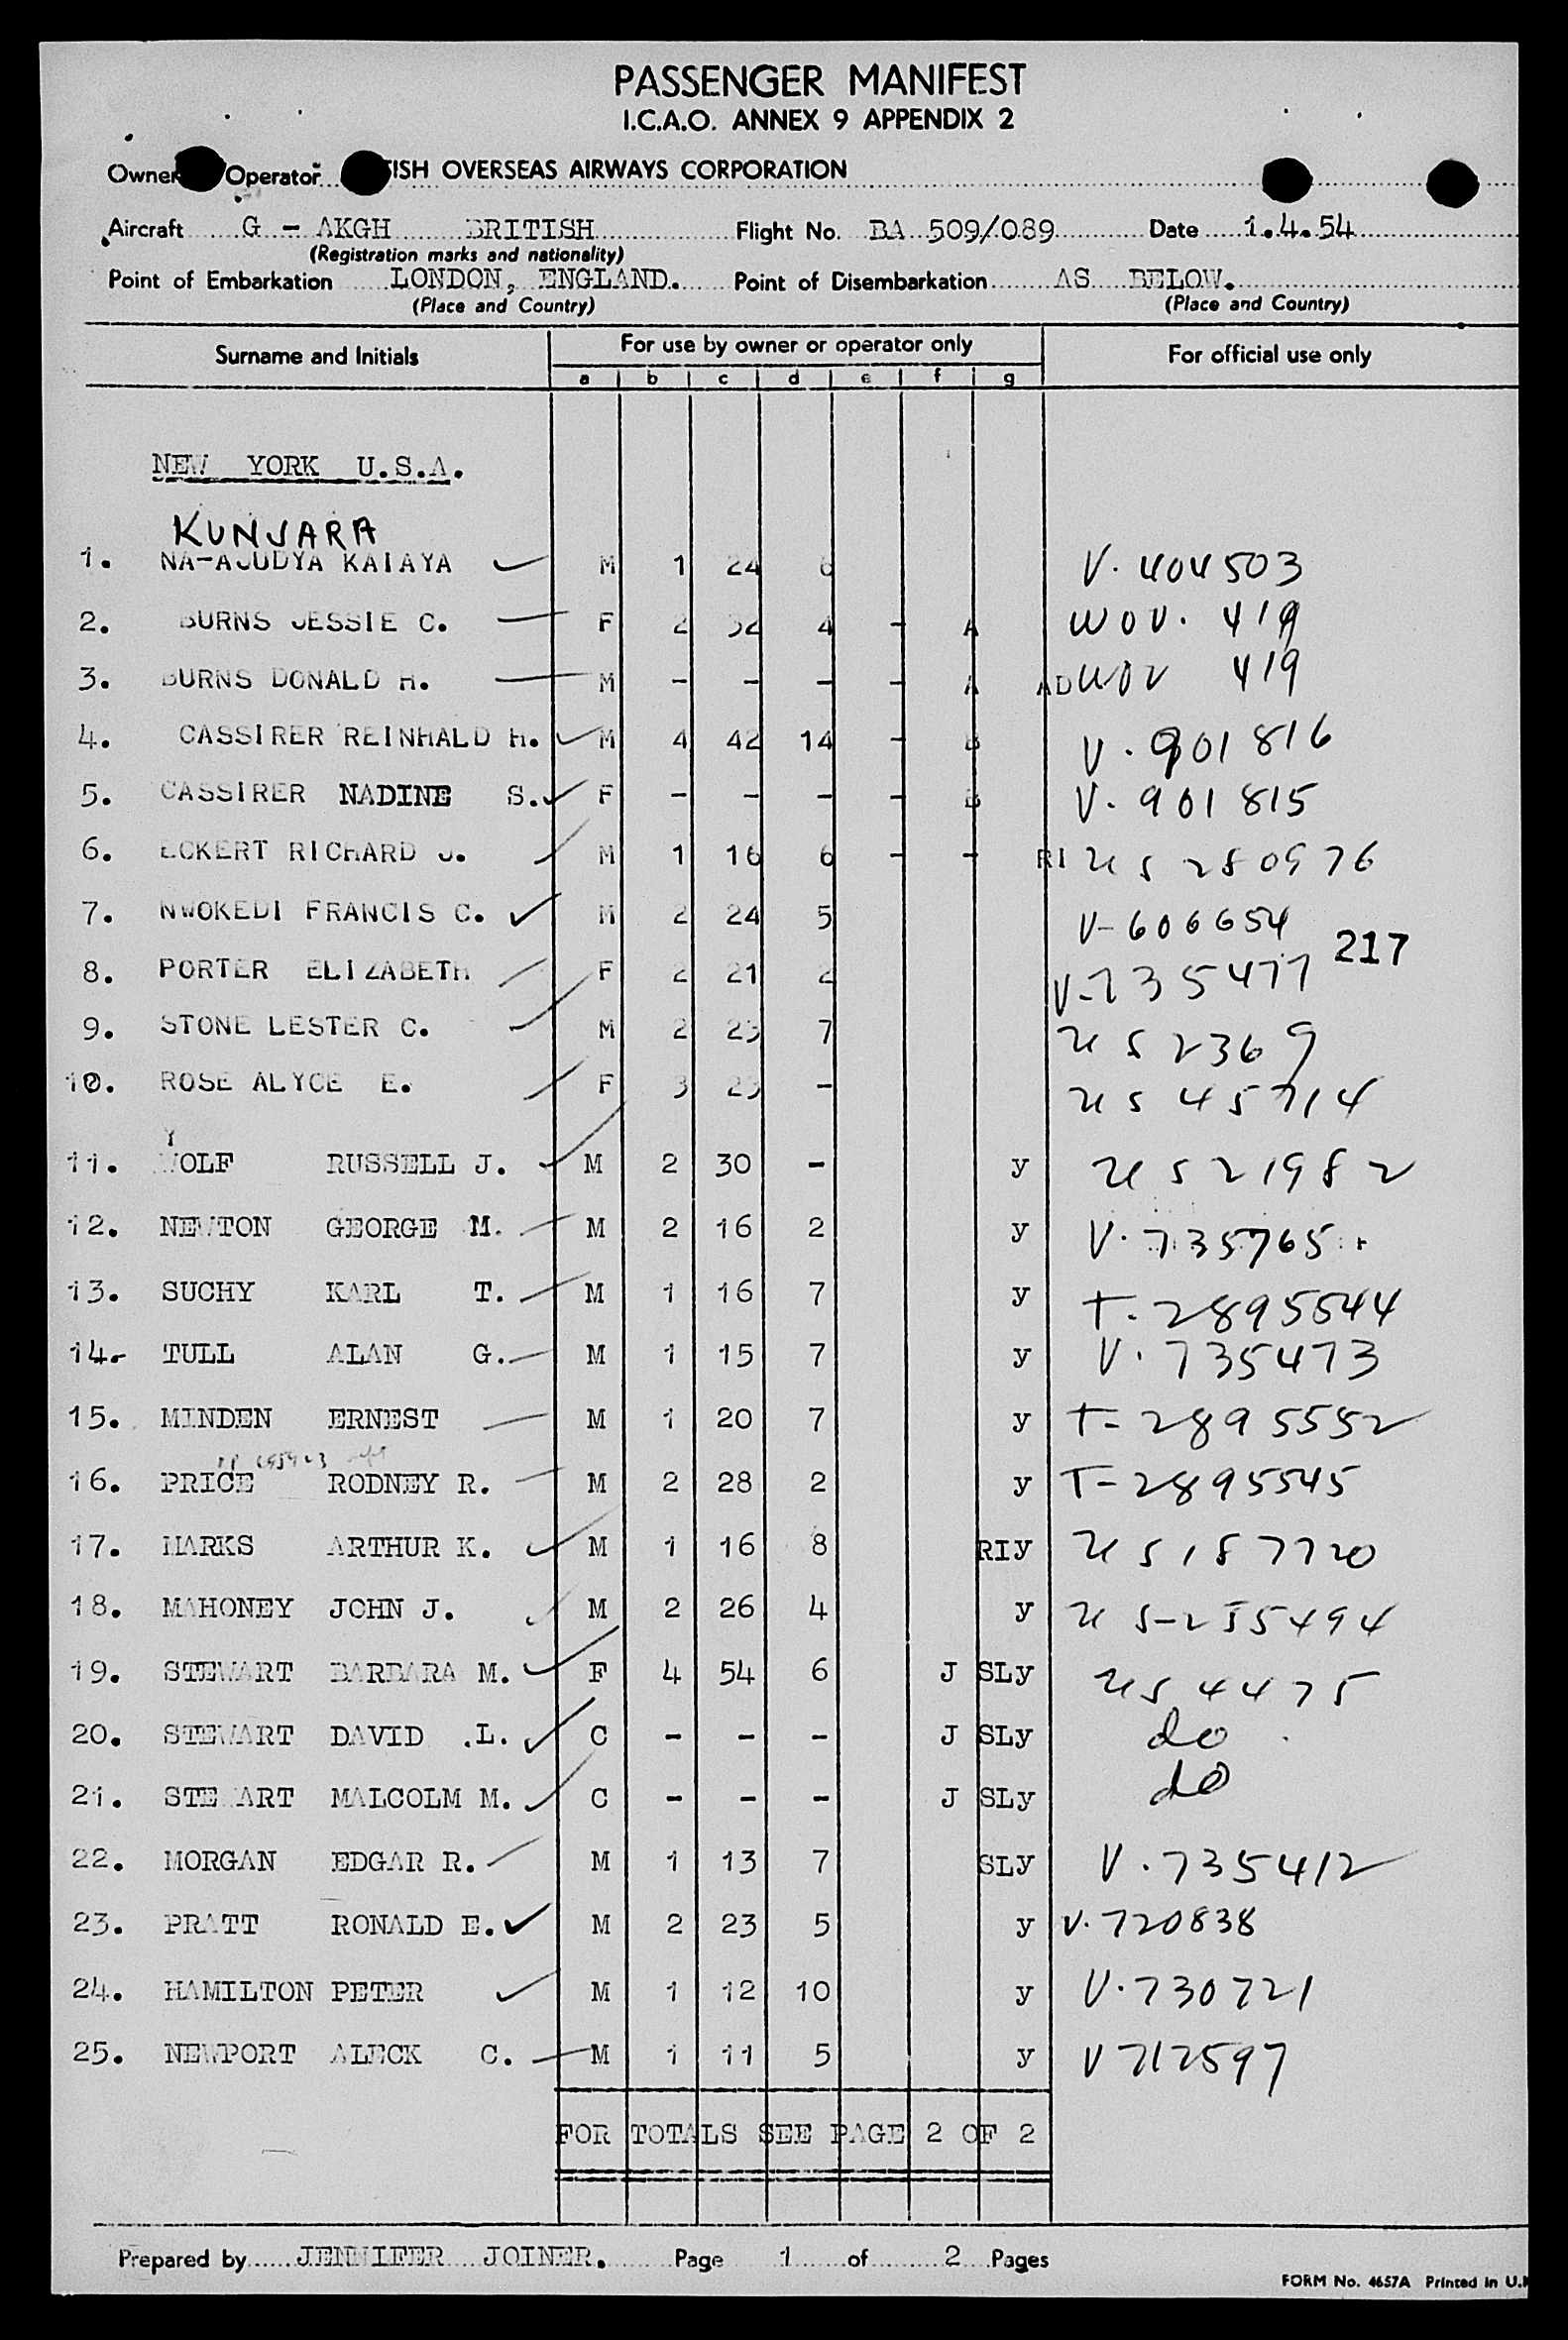 PASSENGER MANIFEST
I.C.A.O. ANNEX 9 APPENDIX 2
Owner Operator ISH OVERSEAS AIRWAYS CORPORATION
Aircraft G - AKGH BRITISH Flight No. BA 509/089 Date 1.4.54
(Registration marks and nationality)
Point of Embarkation LONDON, ENGLAND. Point of Disembarkation AS BELOW.
(Place and Country) (Place and Country)
Surname and Initials For use by owner or operator only For official use only
a b c d e f g
NEW YORK U.S.A.
KUNJARA
1. NA-AJUDYA KATAYA M 1 24 6 V. 404503
2. BURNS JESSIE C. F 2 32 4 - A WOV. 419
3. BURNS DONALD H. M - - - - A AD WOV 419
4. CASSIRER REINHALD H. M 4 42 14 - B V. 901816
5. CASSIRER NADINE S. F - - - - B V. 901815
6. ECKERT RICHARD J. M 1 16 6 - - RI US 280976
7. NWOKEDI FRANCIS C. M 2 24 5 V-606654
217
8. PORTER ELIZABETH F 2 21 2 V-735477
9. STONE LESTER C. M 2 23 7 US 2369
10. ROSE ALYCE E. F 3 23 - US 45714
Y
11. WOLF RUSSELL J. M 2 30 - y US 21982
12. NEWTON GEORGE M. M 2 16 2 y V. 735765
13. SUCHY KARL T. M 1 16 7 y T. 2895544
14. TULL ALAN G. M 1 15 7 y V. 735473
15. MINDEN ERNEST M 1 20 7 y T-2895552
16. PRICE RODNEY R. M 2 28 2 y T-2895545
17. MARKS ARTHUR K. M 1 16 8 RIy US 187720
18. MAHONEY JOHN J. M 2 26 4 y US-255494
19. STEWART BARBARA M. F 4 54 6 J SLy US 4475
20. STEWART DAVID .L. C - - - J SLy do
21. STEWART MALCOLM M. C - - - J SLy do
22. MORGAN EDGAR R. M 1 13 7 SLy V. 735412
23. PRATT RONALD E. M 2 23 5 y V. 720838
24. HAMILTON PETER M 1 12 10 y V. 730721
25. NEWPORT ALECK C. M 1 11 5 y V 712597
FOR TOTALS SEE PAGE 2 OF 2
Prepared by JENNIFER JOINER. Page 1 of 2 Pages
FORM No. 4657A Printed in U.